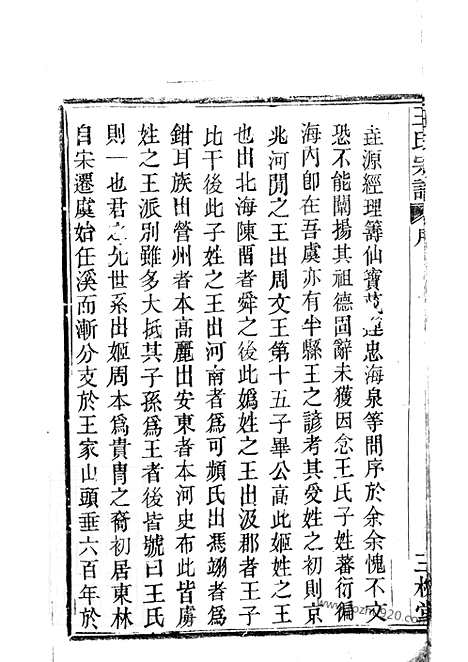 王氏宗譜
序
三槐堂
垚源經理籌仙寶茂達忠海泉等問序於余余愧不文
恐不能闡揚其祖德固辭未獲因念王氏子姓蕃衍徧
海內卽在吾虞亦有半縣王之諺考其受姓之初則京
兆河閒之王出周文王第十五子畢公高此姬姓之王
也出北海陳畱者舜之後此嬀姓之王出汲郡者王子
比干後此子姓之王出河南者爲可頻氏出馮翊者爲
鉗耳族出營州者本高麗出安東者本河史布此皆虜
姓之王派別雖多大抵其子孫爲王者後皆號曰王氏
則一也君之先世系出姬周本爲貴胄之裔初居東林
自宋遷虞始任溪而漸分支於王家山頭垂六百年於